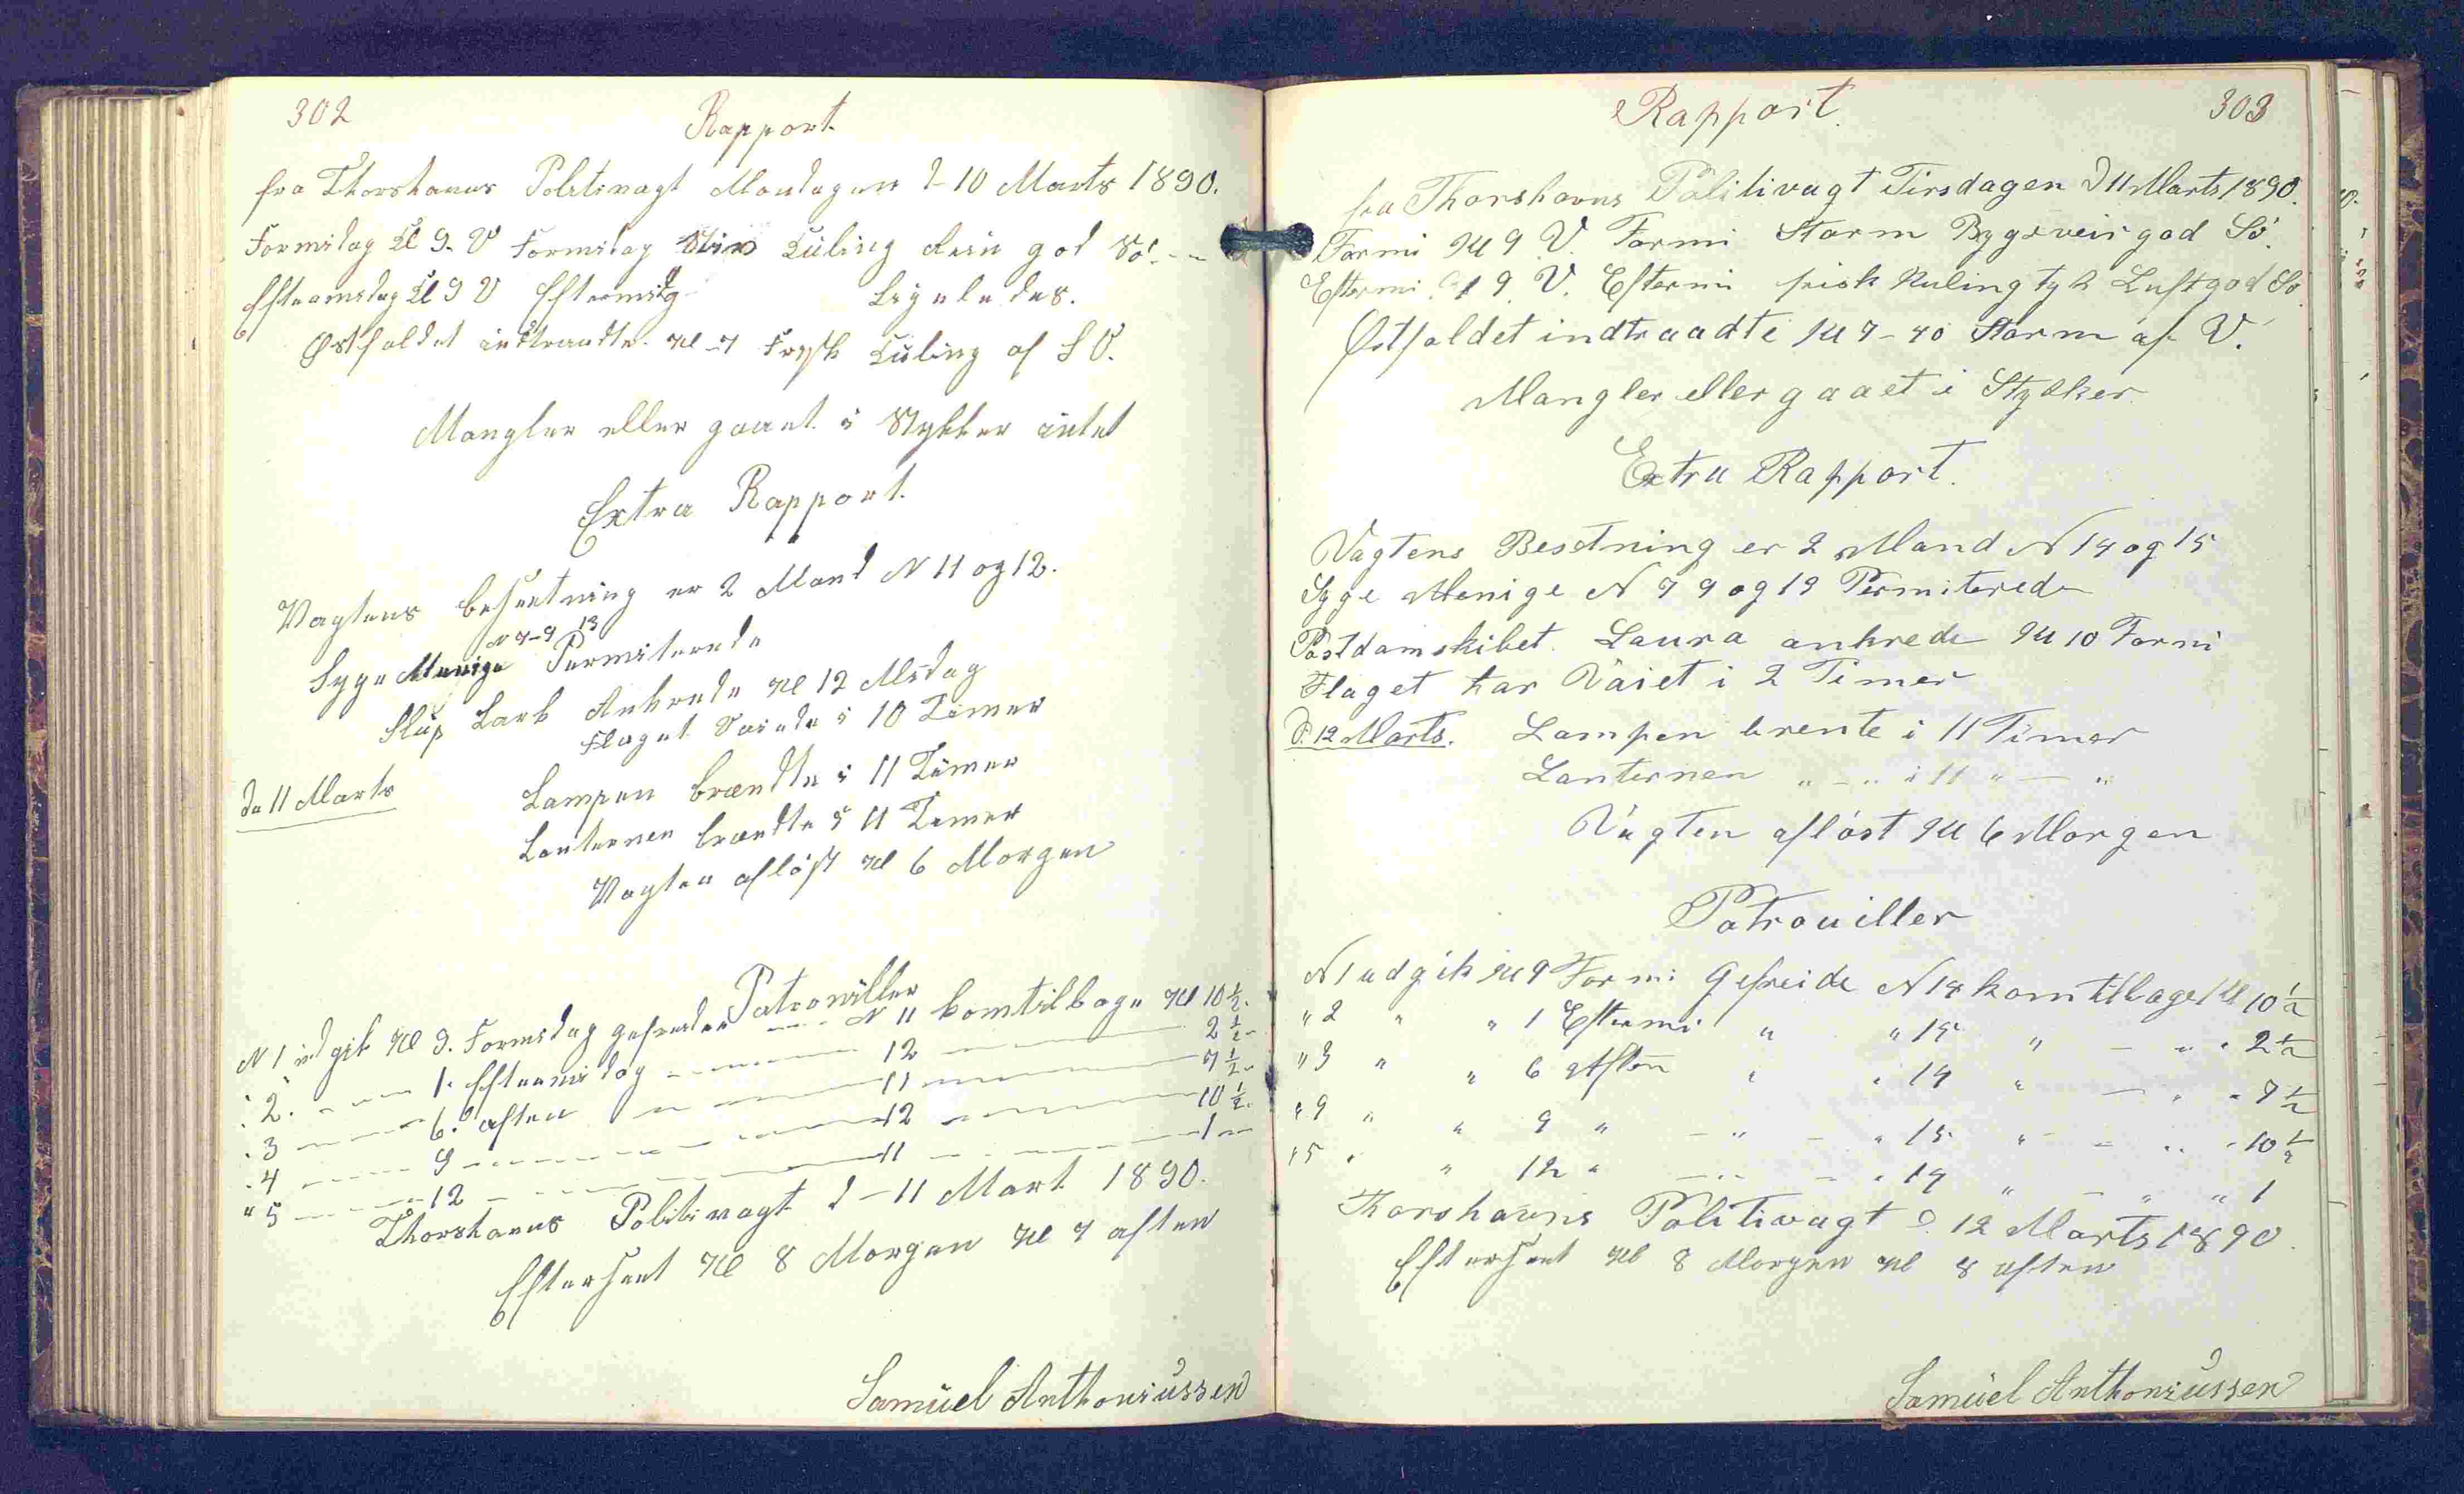 302
Rapport
fra Thorshavns Politivagt Mandagen d-10 Marts 1890.
Formidag Kl 9. V Formidag Stiv Kuling Rein god Sö. --
Efteramidag Kl 9 V Eftermidg Ligeledes.
Østfaldet indtraadte. Kl-7 Frysk Kuling af SV.
Mangler eller gaaet i Stykker intet
Extra Rapport.
Vagtens besætning er 2 Mand N 11 og 12.
N 7-9 13
Syge Menige Permiterede
Slup Lark Ankrede Kl 12 Midag
Flaget Vaiede i 10 Timer
da 11 Marts Lampen brændte i 11 Timer
Lanternen brændte i 11 Timer
Vagten aflöst Kl 6 Morgen
Patrouiller
N 1 ud gik Kl 9. Formidag gefreider N 11 kom tilbage Kl 10 1/2.
" 2. 1. Efteramidag 12 2 1/2
" 3 6. aften 11 7 1/2
" 4 9 12 10 1/2
" 5 12 11 1
Thorshavns Politivagt d-11 Mart 1890.
Efterseet Kl 8 Morgen Kl 7 aften
Samúel Anthoniússen
Rapport. 303
fra Thorshavns Politivagt Tirsdagen D 11 Marts 1890.
Formi Kl 9 V. Formi Storm Bygeveir god Sö.
Eftermi. Kl 9 V. Eftermi frisk Kuling tyk Luft god Sö
Østfaldet indtraadte Kl 7-40 Storm af V.
Mangler eller gaaet i Stykker.
Extra Rapport.
Vagtens Besetning er 2 Mand N 14 og 15
Syge Menige N 7 9 og 13 Permiterede
Postdamskibet. Laura ankrede Kl 10 Formi
Flaget har Vaiet i 2 Timer
D. 12 Marts. Lampen brente i 11 Timer
Lanternen " - " i 11 " — "
Vagten aflöst Kl 6 Morgen
Patrouiller
N 1 udgik Kl 9 Formi Gefreide N 14 kom tilbage Kl 10 1/2
" 2 " " 1 Eftermi " " 15 " — " " 2 1/2
" 3 " " 6 Aften " " 14 " — " " 7 1/2
" 4 " " 9 " — " — " 15 " — " " 10 1/2
" 5 " " 12 " — " — " 14 " — " " 1
Thorshavns Politivagt D. 12 Marts 1890.
Efterseet Kl 8 Morgen Kl 8 aften
Samúel Anthoniússen